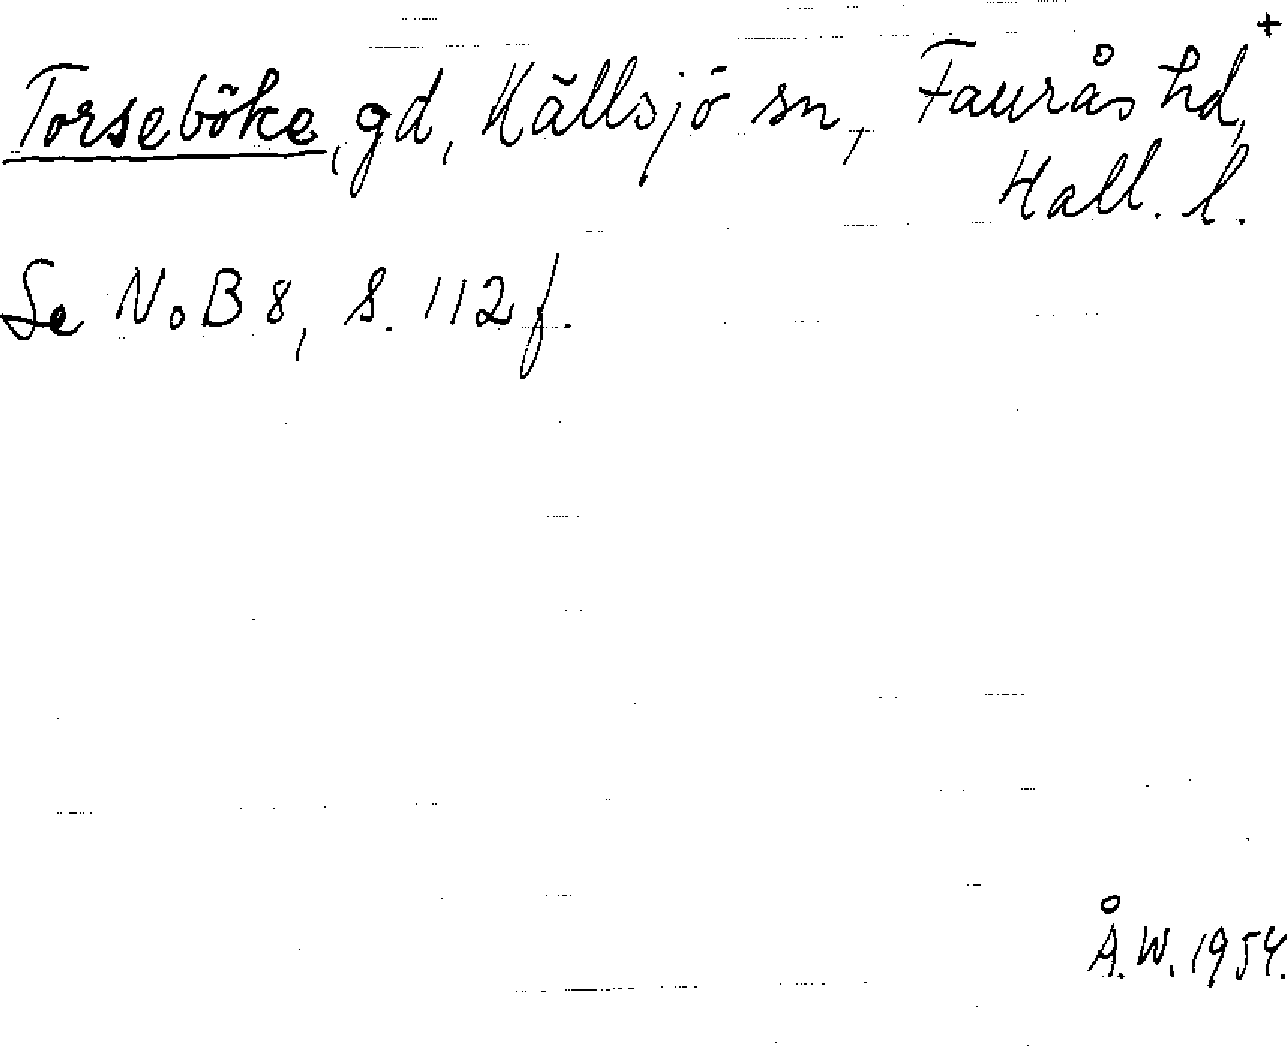 Torseböke, gd, Källsjö sn, Faurås hd, +
Hall. l.
Se NoB 8, s. 112 f.
Å.W. 1954.